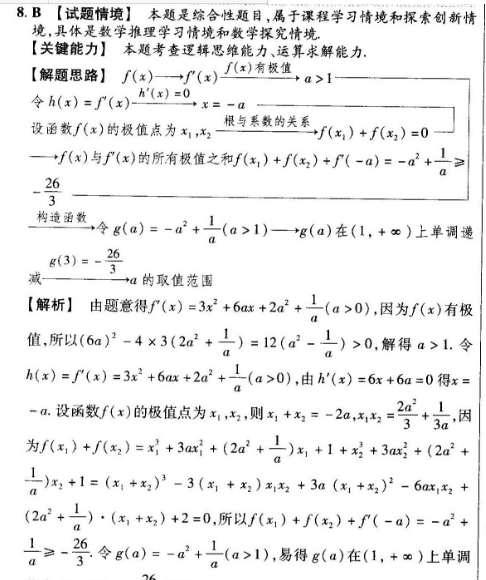 8. B 【试题情境】 本题是综合性题目,属于课程学习情境和探索创新情
境,具体是数学推理学习情境和数学探究情境.
【关键能力】 本题考查逻辑思维能力、运算求解能力.
【解题思路】 f(x)⟶f′(x) —f(x)有极值→ a>1
令 h(x)=f′(x) —h′(x)=0→ x=-a
设函数f(x)的极值点为 x₁,x₂ —根与系数的关系→ f(x₁)+f(x₂)=0
⟶f(x)与f′(x)的所有极值之和f(x₁)+f(x₂)+f′(-a)=-a²+1/a≥
-26/3
—构造函数→令 g(a)=-a²+1/a(a>1)⟶g(a)在(1,+∞)上单调递
减 —g(3)=-26/3→a 的取值范围
【解析】 由题意得f′(x)=3x²+6ax+2a²+1/a(a>0),因为f(x)有极
值,所以(6a)²-4×3(2a²+1/a)=12(a²-1/a)>0,解得 a>1. 令
h(x)=f′(x)=3x²+6ax+2a²+1/a(a>0),由 h′(x)=6x+6a=0 得x=
-a. 设函数f(x)的极值点为 x₁,x₂,则 x₁+x₂=-2a,x₁x₂=2a²/3+1/3a,因
为f(x₁)+f(x₂)=x₁³+3ax₁²+(2a²+1/a)x₁+1+x₂³+3ax₂²+(2a²+
1/a)x₂+1=(x₁+x₂)³-3(x₁+x₂)x₁x₂+3a(x₁+x₂)²-6ax₁x₂+
(2a²+1/a)·(x₁+x₂)+2=0,所以f(x₁)+f(x₂)+f′(-a)=-a²+
1/a≥-26/3. 令 g(a)=-a²+1/a(a>1),易得 g(a)在(1,+∞)上单调
26